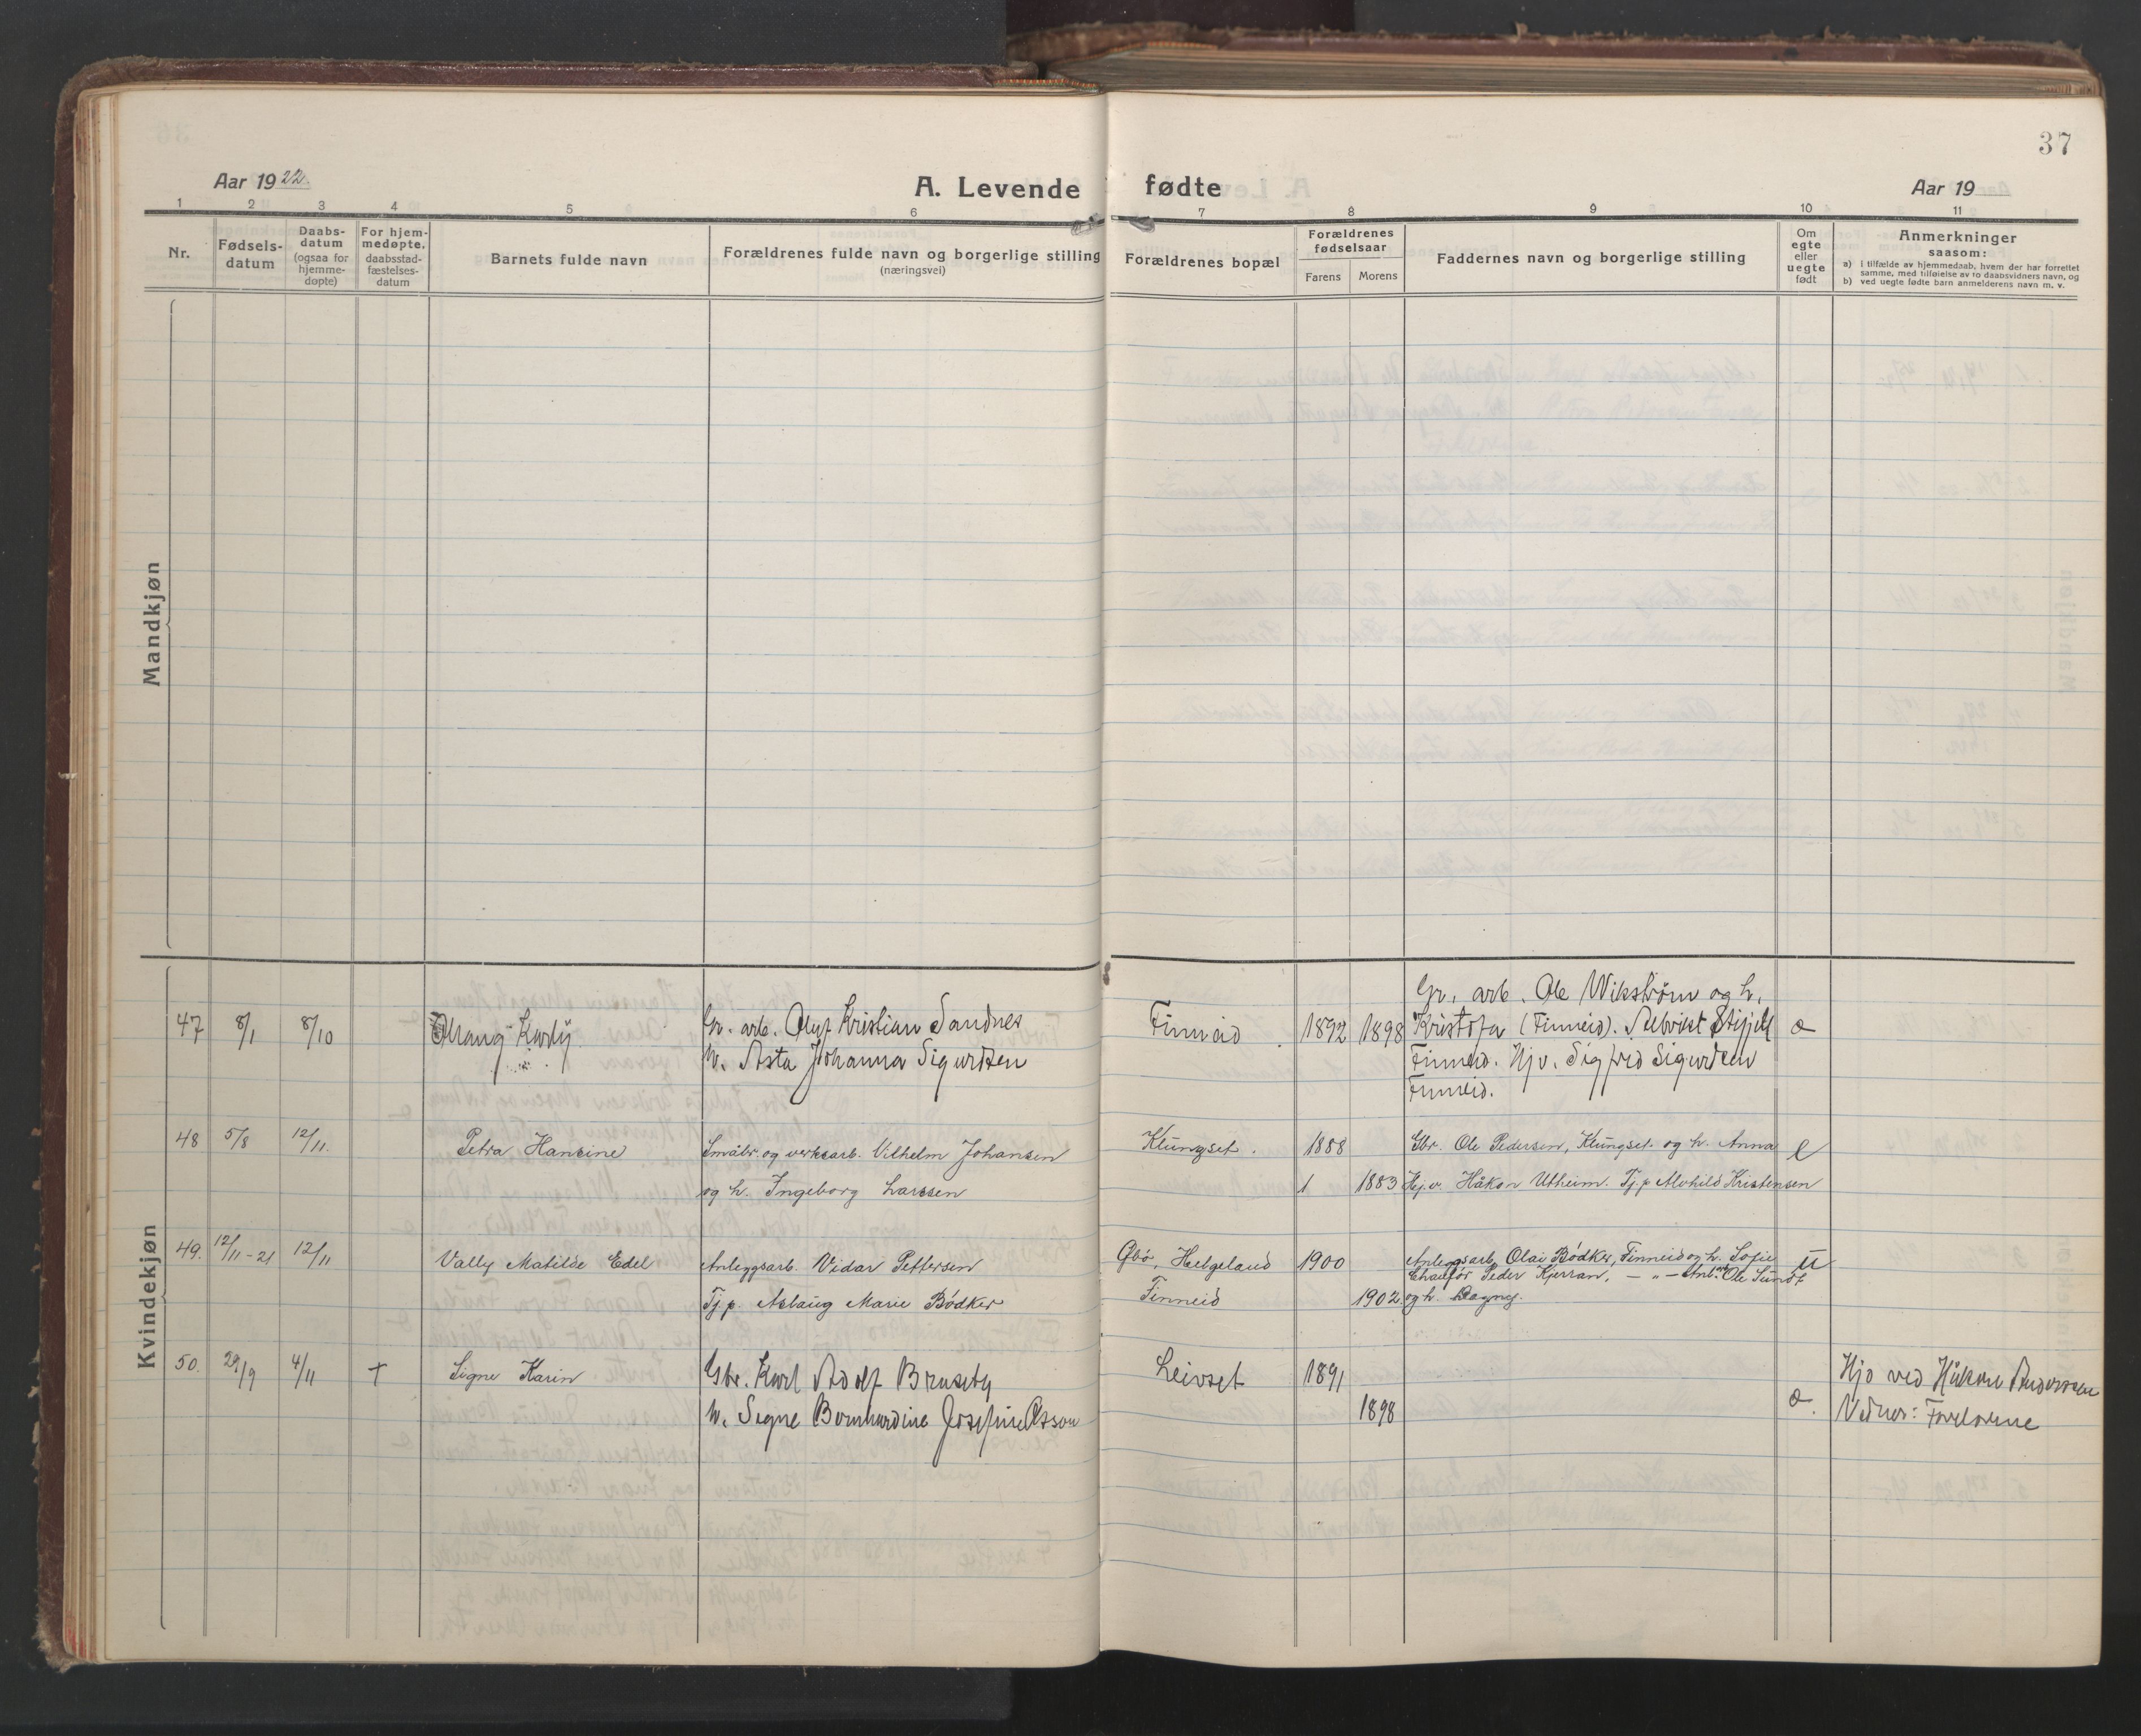 37
Aar 1922.
A. Levende fødte
Aar 19
1 2 3 4 5 6 7 8 9 10 11
Nr.
Fødsels-
datum
Daabs-
datum
(ogsaa for
hjemme-
døpte)
For hjem-
medøpte,
daabsstad-
fæstelses-
datum
Barnets fulde navn
Forældrenes fulde navn og borgerlige stilling
(næringsvei)
Forældrenes bopæl
Forældrenes
fødselsaar
Farens Morens
Faddernes navn og borgerlige stilling
Om
egte
eller
uegte
født
Anmerkninger
saasom:
a) i tilfælde av hjemmedaab, hvem der har forrettet
samme, med tilføielse av to daabsvidners navn, og
b) ved uegte fødte barn anmelderens navn m. v.
Mandkjøn
Kvindekjøn
47 8/1 8/10
Gr. arb. Oluf Kristian Sandnes
h. Asta Johanna Sigurdsen
Finneid 1892 1898
Gr. arb. Ole Wikstrøm og h.
Kristofa (Finneid).
Finneid. Hjv. Sigfrid Sigurdsen
Finneid.
e
48 5/8 12/11.
Petra Hansine
Småbr. og verksarb. Vilhelm Johansen
og h. Ingeborg Larssen
Klungset. 1888
1883
Gbr. Ole Pedersen, Klungset og h. Anna
Hj.v. Håkon Utheim. Tj.p Alvhild Kristensen
e
49. 12/11-21 12/11
Vally Matilde Edel
Anleggsarb. Vidar Pettersen
Tj.p. Aslaug Marie Bödker
Helgeland 1900
Finneid 1902.
Anleggsarb. Olai Bödker, Finneid og h. Sofie
Chaufför Peder Kjerran, — " — Anl. Ole Sundt
og h. Dagny.
u
50. 29/9 4/11 +
Signe Karin
Gbr. Karl Adolf Bruseth
h. Signe Bernhardine Josefine Olsson
Leivset 1891
1898
e.
Hjd ved Håkon Anderssen
Vidner: Foreldrene